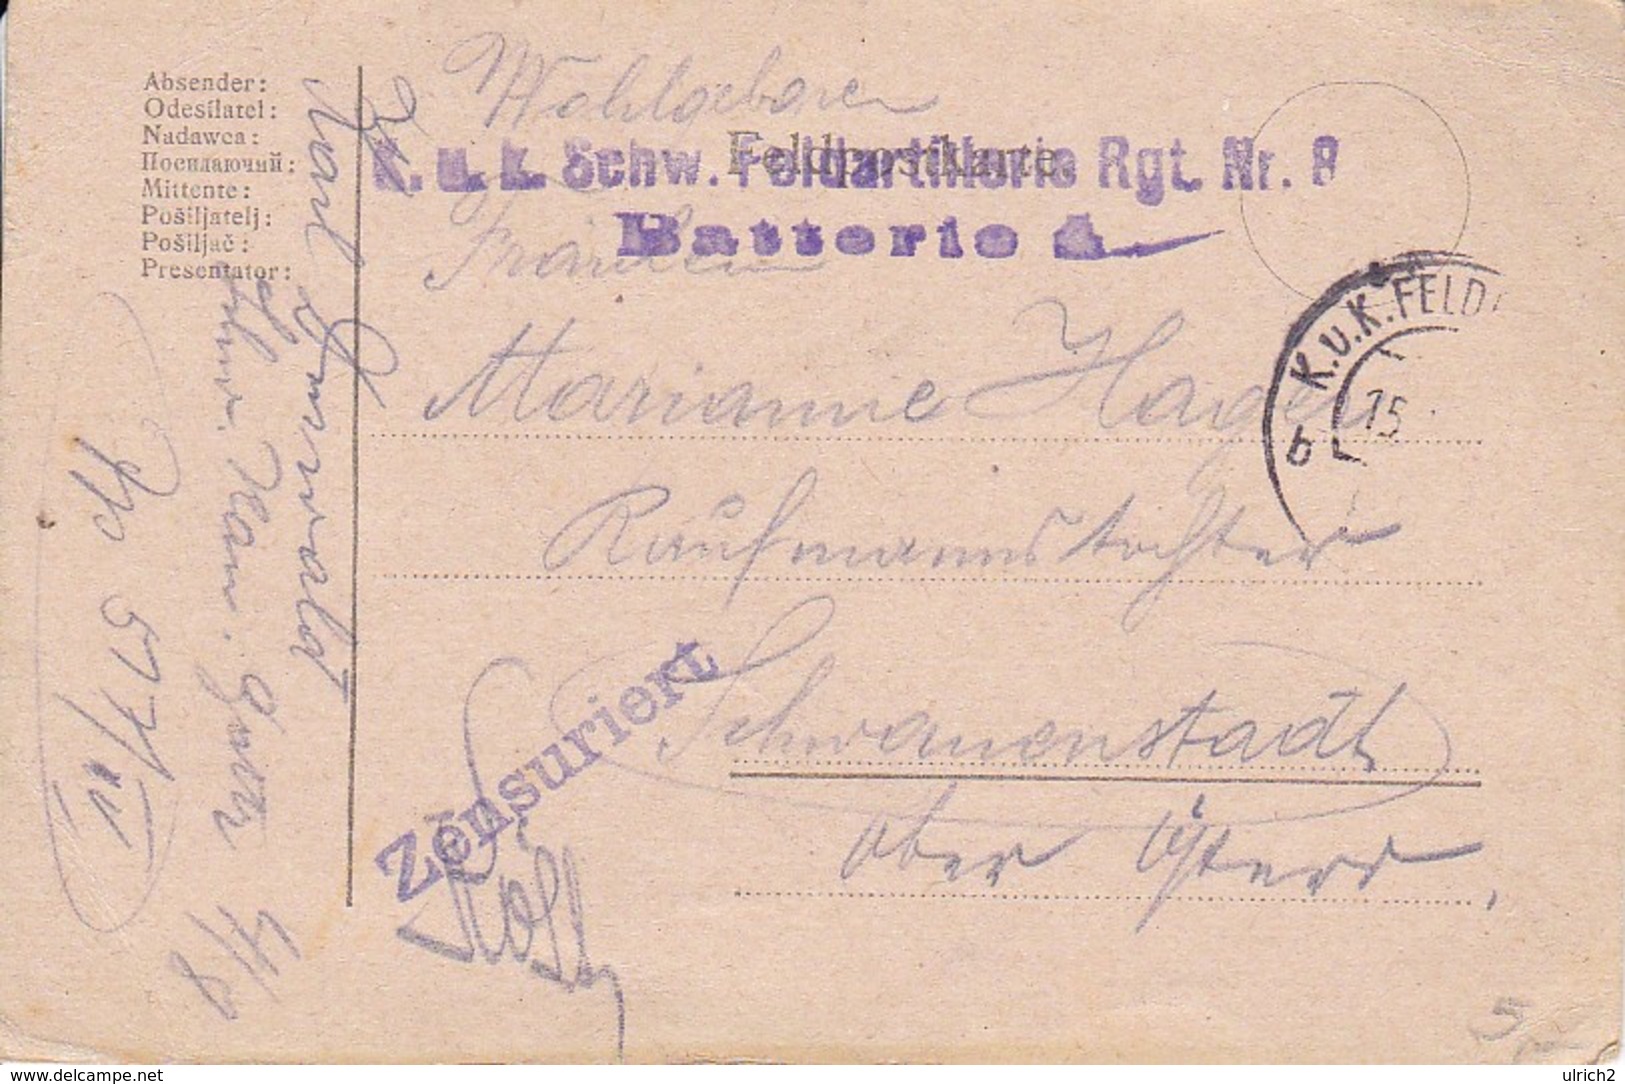 Absender:
Odesílatel:
Nadawca:
Посилаючий:
Mittente:
Pošiljatelj:
Pošiljač:
Presentator:
Feldpostkarte.
K. u. k. Schw. Feldartillerie Rgt. Nr. 8
Batterie 4.
Wohlgeboren
Fräulein
Marianne Hager
Kaufmannstochter
Schwanenstadt
Ober Österr.
K.u.K. FELD
15
b
Zensuriert
Karl
Fp 571/IV
4/8
5
delcampe.net
ulrich2